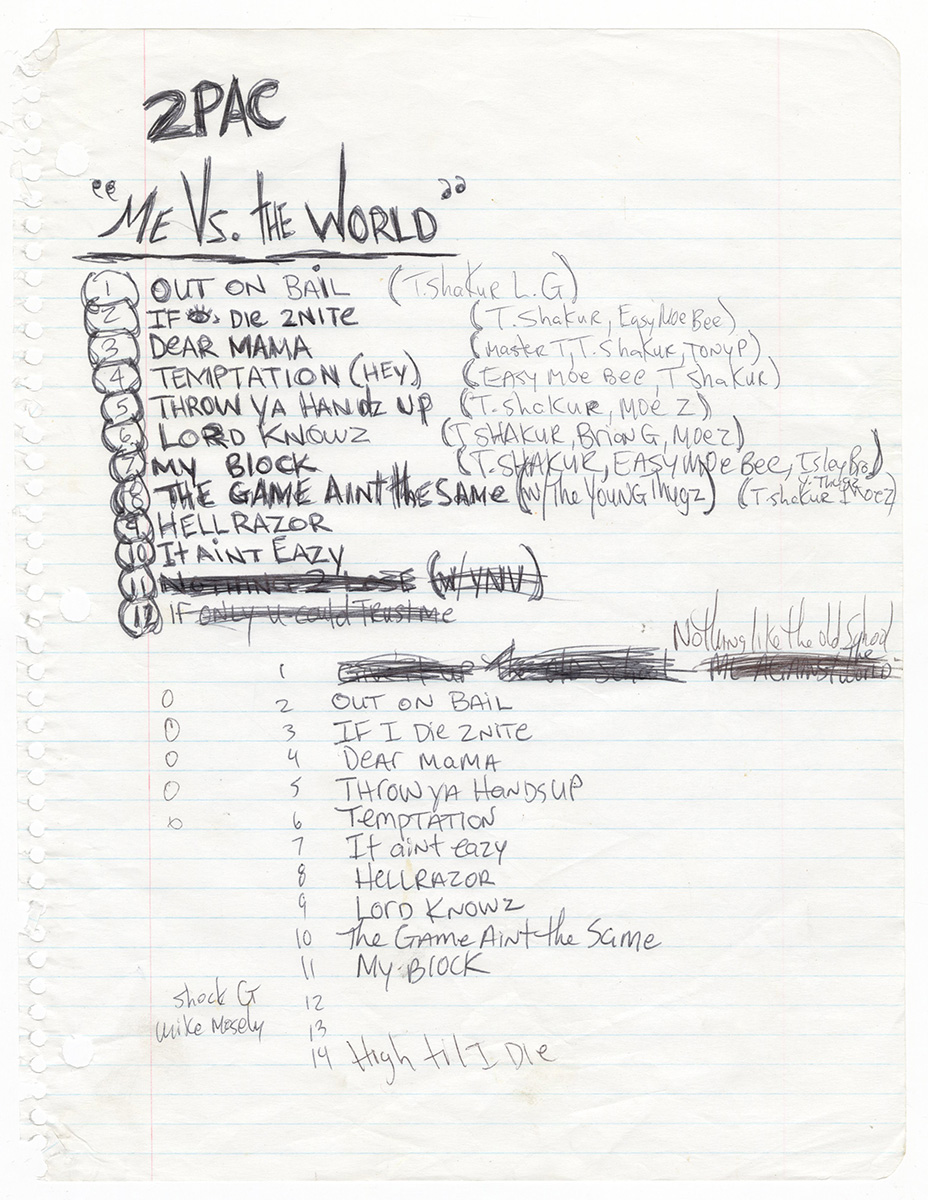 2PAC
"ME VS. the WORLD"
1 OUT ON BAIL (T.Shakur L.G)
2 IF DIE 2NITE (T. Shakur, Easy Moe Bee)
3 DEAR MAMA (Master T, T. Shakur, Tony P)
4 TEMPTATION (HEY) (EASY MOE BEE, T Shakur)
5 THROW YA HANDZ UP (T. Shakur, MOE Z)
6 LORD KNOWZ (T SHAKUR, Brian G, MOEZ)
7 MY BLOCK (T. SHAKUR, EASY MOE BEE, Isley Bro)
8 THE GAME AINT the SAME (w/ The YOUNG Thugz) (T. Shakur Y. Thugz MOEZ)
9 HELLRAZOR
10 It AINT EAZY
11 NOTHING 2 LOSE (W/ YNV)
12 IF only u could Trust me
Nothing like the old School
1 the old School ME AGAINST the WORLD
0 2 OUT ON BAIL
0 3 IF I DIE 2NITE
0 4 Dear MAMA
0 5 THROW YA HANDS UP
0 6 TEMPTATION
7 It aint eazy
8 HELLRAZOR
9 LORD KNOWZ
10 The GAME AINT the Same
11 MY BLOCK
Shock G 12
Mike Mosely 13
14 High til I Die